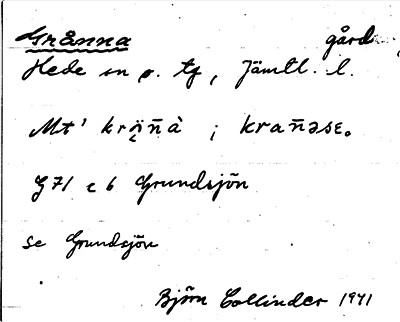 Grånna gård
Hede sn o. tg, Jämtl. l.
Mt' krä̰n̄à ; kran̄əse.
G71 c 6 Grundsjön
se Grundsjön
Björn Collinder 1941